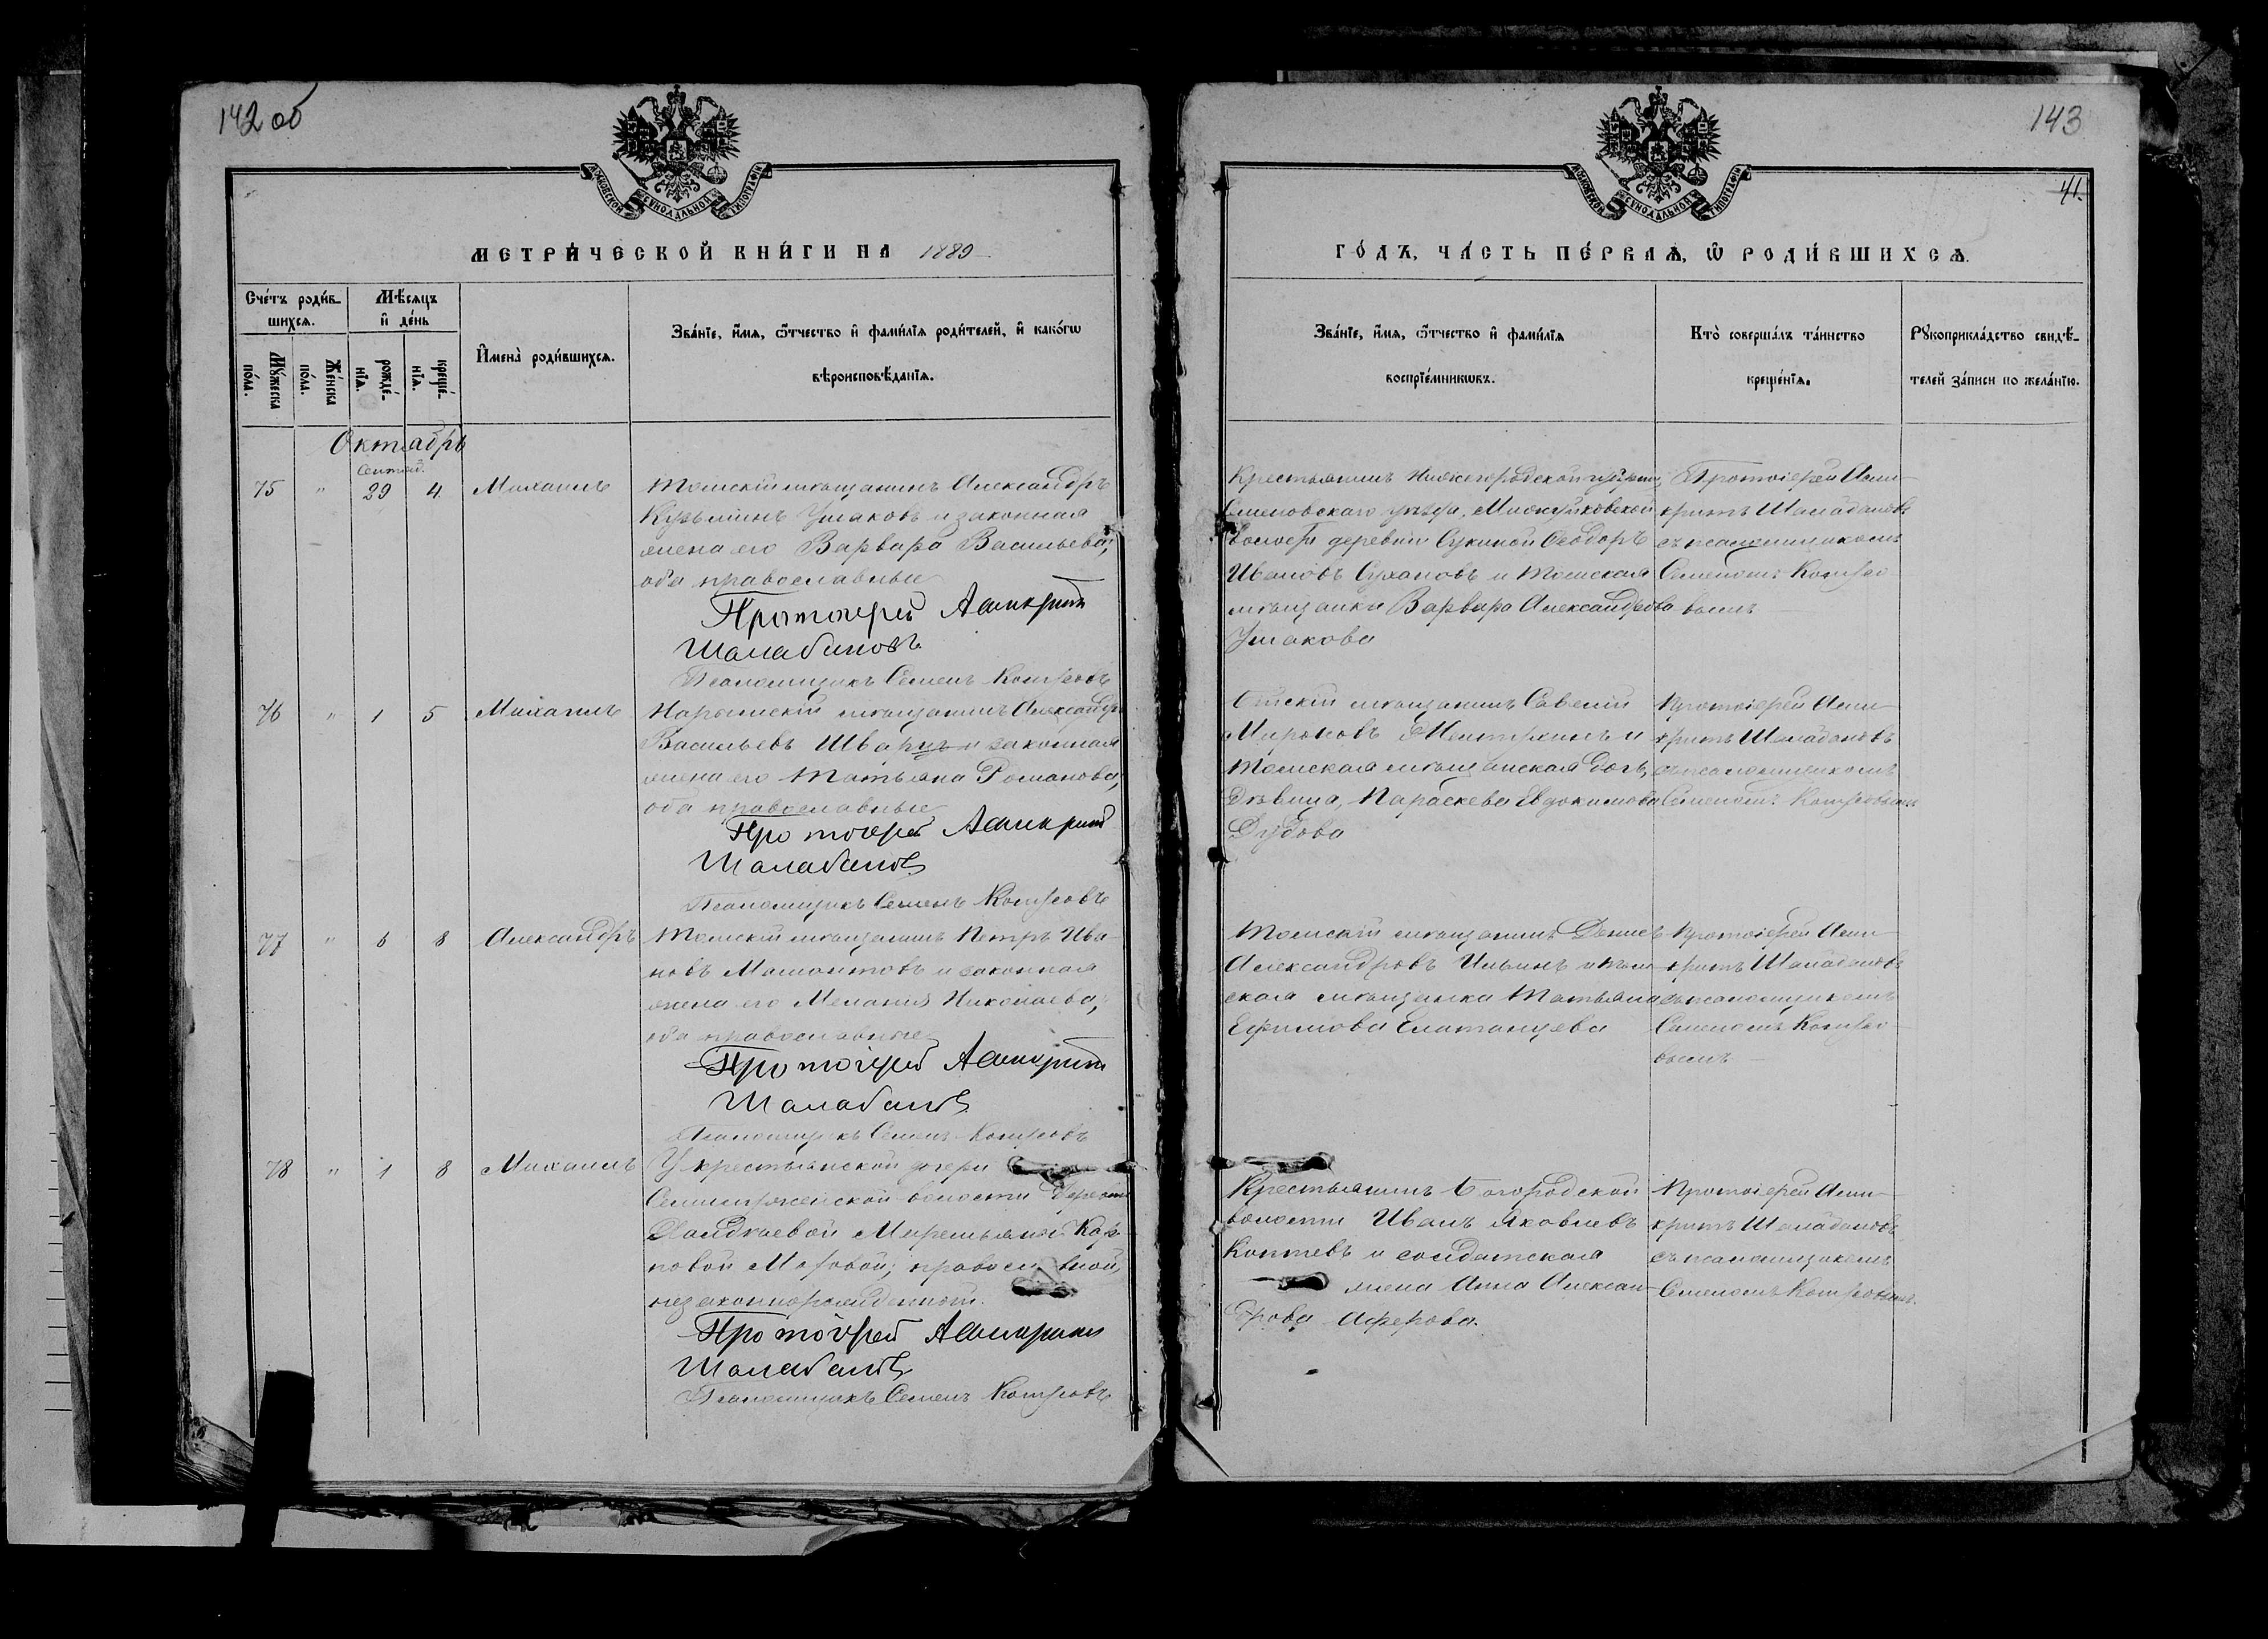 142 об
МОСКОВСКОЙ СѴНОДАЛЬНОЙ ТИПОГРАФІИ
МЕТРИ́ЧЕСКОЙ КНИ́ГИ НА 1889
Сче́тъ роди́в-
шихсѧ.
Мѣ́сѧцъ
и҆ де́нь
Мꙋ́жеска
по́ла.
Же́нска
по́ла.
рожде́-
нїѧ.
креще́-
нїѧ.
И҆мена̀ роди́вшихсѧ.
Зва́нїе, и҆́мѧ, ѻ҆́тчество и҆ фами́лїѧ роди́телей, и҆ како́гѡ
вѣроисповѣ́данїѧ.
Октябрь
Сентяб.
75 " 29 4 Михаилъ Томскій мѣщанинъ Александръ
Кузьминъ Ушаковъ и законная
жена его Варвара Васильева,
оба православные
Протоіерей Асинкритъ
Шалабановъ
Псаломщикъ Семенъ
76 " 1 5 Михаилъ Нарымскій мѣщанинъ Александръ
Васильевъ Шварцъ и законная
жена его Татьяна Романова,
оба православные
Протоіерей Асинкритъ
Шалабановъ
Псаломщикъ Семенъ
77 " 6 8 Александръ Томскій мѣщанинъ Петръ Ива-
новъ Мамонтовъ и законная
жена его Меланія Николаева,
оба православные
Протоіерей Асинкритъ
Шалабановъ
Псаломщикъ Семенъ
78 " 1 8 Михаилъ У крестьянской дочери
волости
Кар-
повой православной,
незаконнорожденный.
Протоіерей Асинкритъ
Шалабановъ
Псаломщикъ Семенъ
143
41.
МОСКОВСКОЙ СѴНОДАЛЬНОЙ ТИПОГРАФІИ
ГО́ДЪ, ЧА́СТЬ ПЕ́РВАѦ, Ѡ҆ РОДИ́ВШИХСѦ.
Зва́нїе, и҆́мѧ, ѻ҆́тчество и҆ фами́лїѧ
воспрїе́мникѡвъ.
Кто̀ соверша́лъ та́инство
креще́нїѧ.
Рꙋкоприкла́дство свидѣ́-
телей за́писи по жела́нїю.
Крестьянинъ Нижегородской губерніи,
Семеновскаго уѣзда,
волости деревни Ѳеодоръ
Ивановъ Сухановъ и Томская
мѣщанка Варвара Александрова
Ушакова
Протоіерей Асин-
критъ Шалабановъ
съ псаломщикомъ
Семеномъ
вымъ
мѣщанинъ Савелій
Мироновъ и
Томская мѣщанская дочь,
дѣвица, Параскева Евдокимова
Дубова
Протоіерей Асин-
критъ Шалабановъ
съ псаломщикомъ
Семеномъ
Томскій мѣщанинъ Денисъ
Александровъ Ильинъ и том-
ская мѣщанка Татьяна
Ефимова Елатанцева
Протоіерей Асин-
критъ Шалабановъ
съ псаломщикомъ
Семеномъ
вымъ
Крестьянинъ Богородской
волости Иванъ Яковлевъ
Коптевъ и солдатская
жена Анна Алексан-
дрова Аферова.
Протоіерей Асин-
критъ Шалабановъ
съ псаломщикомъ
Семеномъ